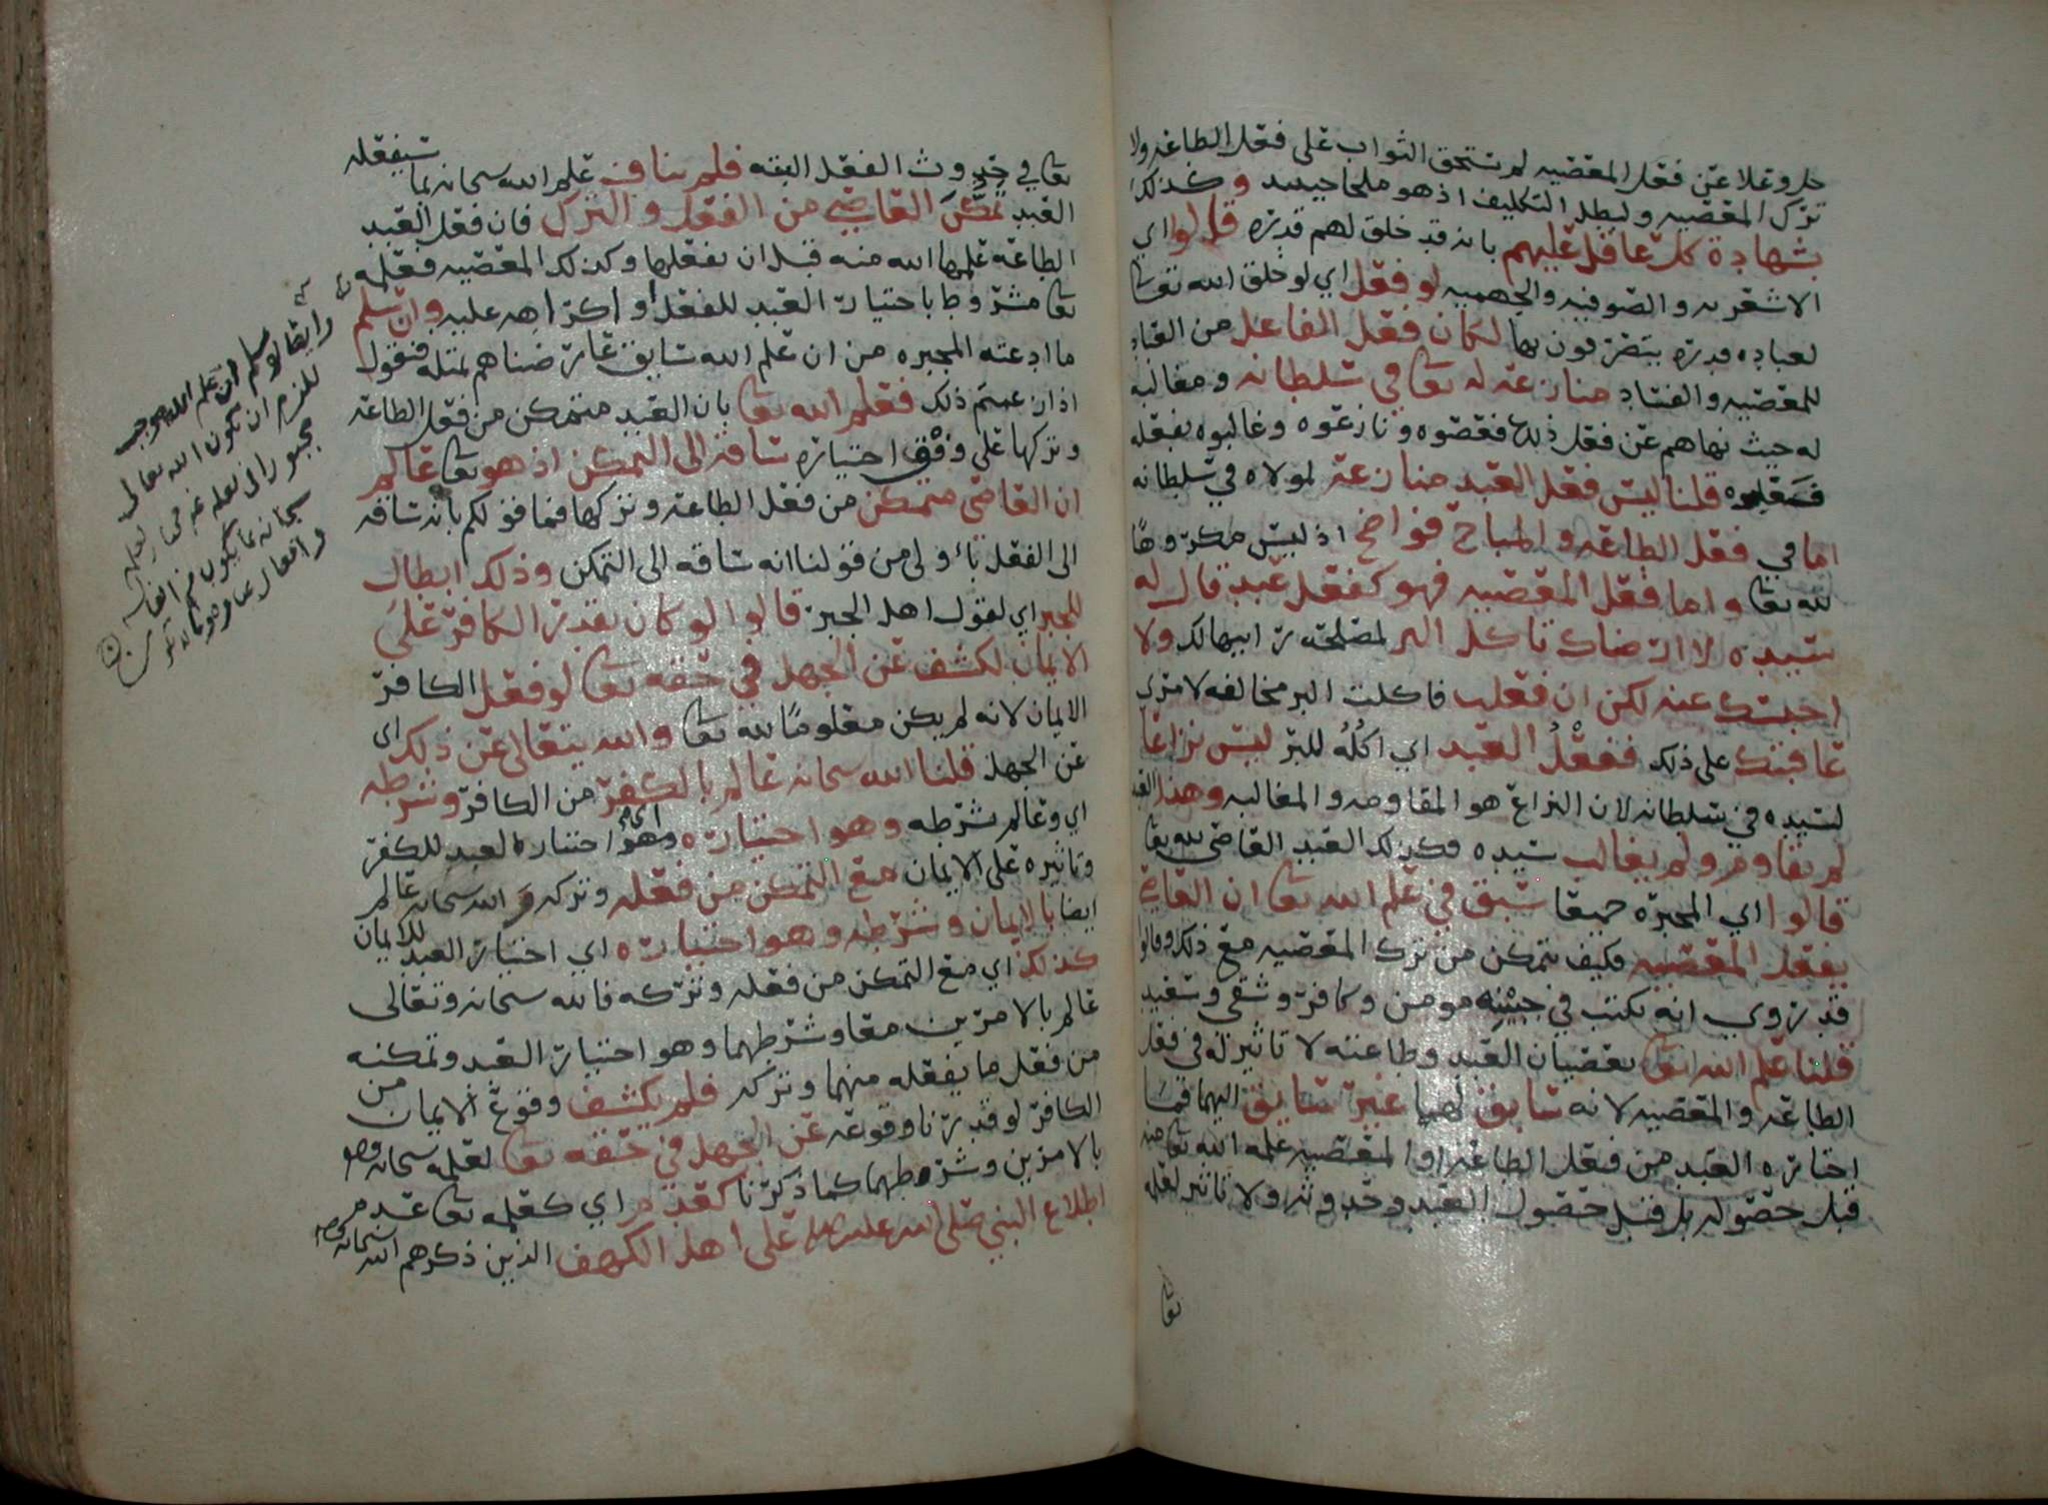 جل وعلا عن فعل المعصيه لم تستحق الثواب على فعل الطاعه ولا
ترك المعصيه ولبطل التكليف اذ هو ملجا حينيد وكذلك
بشهادة كل عاقل عليهم بانه قد خلق لهم قدره قالوا اي
الاشعريه والصوفيه والجهميه لو فعل اي لو خلق الله تعا
لعباده قدره يتصرفون بها لكان فعل الفاعل من العباد
للمعصيه والفساد منازعه له تعا في سلطانه ومغالبه
له حيث نهاهم عن فعل ذلك فعصوه ونازعوه وغالبوه بفعله
قلنا ليس فعل العبد منازعة لمولاه في سلطانه
اما في فعل الطاعه والمباح فواضح اذ ليس مكروها
لله تعا واما فعل المعصيه فهو كفعل عبد قال له
سيده لا ارضاك تاكل البر لمصلحه راىها لك ولا
احبسك عنه لكن ان فعلت فاكلت البر مخالفه لامري
عاقبتك على ذلك ففعْلُ العبد اي اكلُهُ للبر ليس نزاعا
لسيده في سلطانه لان النزاع هو المقاومه والمغالبه وهذا العبد
لم يقاوم ولم يغالب سيده فكذلك العبد العاصي لله تعا
قالوا اي المجبره جميعا سبق في علم الله تعا ان العاصي
يفعل المعصيه فكيف يتمكن من ترك المعصيه مع ذلك وقالوا
قد روي انه يكتب في جبينه مومن وكافر وشقي وسعيد
قلنا علم الله تعا بعصيان العبد وطاعته لا تاثير له في فعل
الطاعه والمعصيه لانه سابق لهما غير سايق اليهما فما
اختاره العبد من فعل الطاعه او المعصيه علمه الله تعا منه
قبل حصوله بل قبل حصول العبد وحدوثه ولا تاثير لعلمه
تعا
تعا في حدوث الفعل البته فلم يناف علم الله سبحانه بما سيفعله
العبد تمكنَ العاصي من الفعل والترك فان فعل العبد
الطاعة علمها الله منه قبل ان يفعلها وكذلك المعصيه فعلمه
تعا مشروطا باختيار العبد للفعل او اكراهه عليه وان سلم
ما ادعته المجبره من ان علم الله سايق عارضناهم بمثله فنقول
اذا زعمتم ذلك فعلم الله تعا بان العبد متمكن من فعل الطاعه
وتركها على وفق اختياره ساقه الى التمكن اذ هو تعا عالم
ان العاصي متمكن من فعل الطاعه وتركها فما قولكم بانه ساقه
الى الفعل باولى من قولنا انه ساقه الى التمكن وذلك ابطال
للجبر اي لقول اهل الجبر قالوا لو كان يقدر الكافر على
الايمان لكشف عن الجهل في حقه تعا لو فعل الكافر
الايمان لانه لم يكن معلوما لله تعا والله يتعالى عن ذلك اي
عن الجهل قلنا الله سبحانه عالم بالكفر من الكافر وشرطه
اي وعالم بشرطه وهو اختياره اي وهو اختيار العبد للكفر
وتاثيره على الايمان مع التمكن من فعله وتركه والله سبحانه عالم
ايضا بالايمان وشرطه وهو اختياره اي اختيار العبد للايمان
كذلك اي مع التمكن من فعله وتركه فالله سبحانه وتعالى
عالم بالامرين معا وشرطهما وهو اختيار العبد وتمكنه
من فعل ما يفعله منهما وتركه فلم يكشف وقوع الايمان من
الكافر لو قدرنا وقوعه عن الجهل في حقه تعا لعلمه سبحانه
بالامرين وشرطهما كما ذكرنا كعدم اي كعلمه تعا عدم
اطلاع النبي صلى الله عليه على اهل الكهف الذين ذكرهم الله سبحانه
وايضا لو سلم ان علم الله موجب
للزم ان يكون الله تعالى